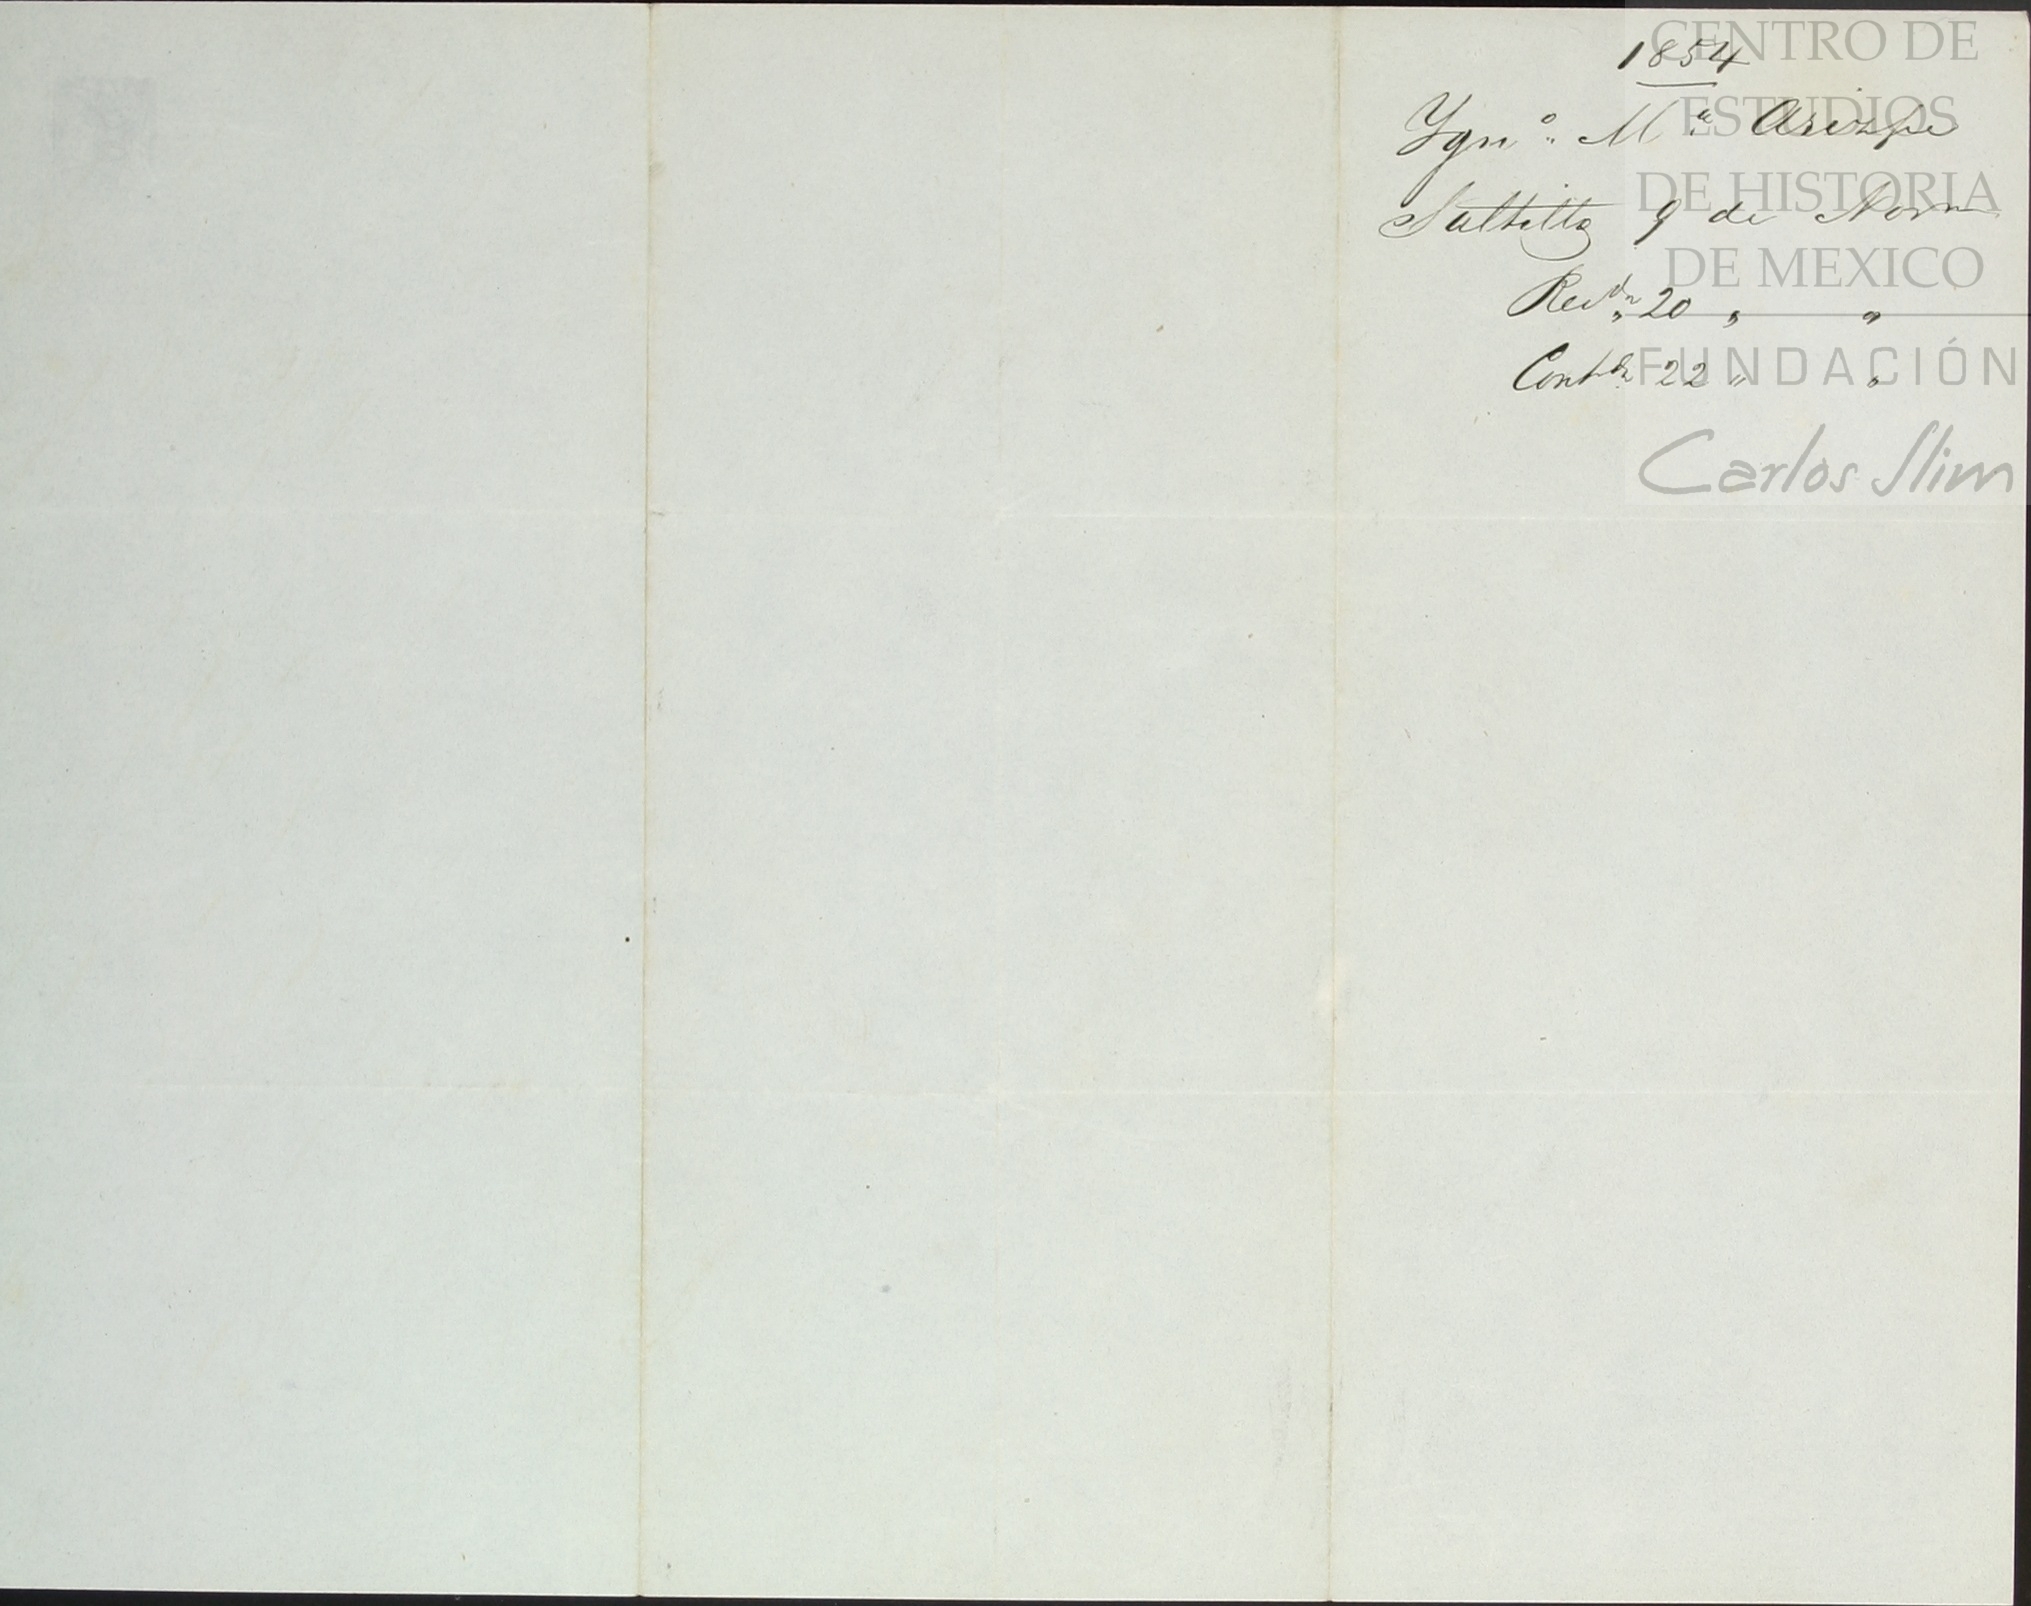 1854
Ygn.º M.ª Arizpe
Saltillo 9 de Nov.
Rec.da 20 " "
Cont.da 22 " "
CENTRO DE
ESTUDIOS
DE HISTORIA
DE MEXICO
FUNDACIÓN
Carlos Slim